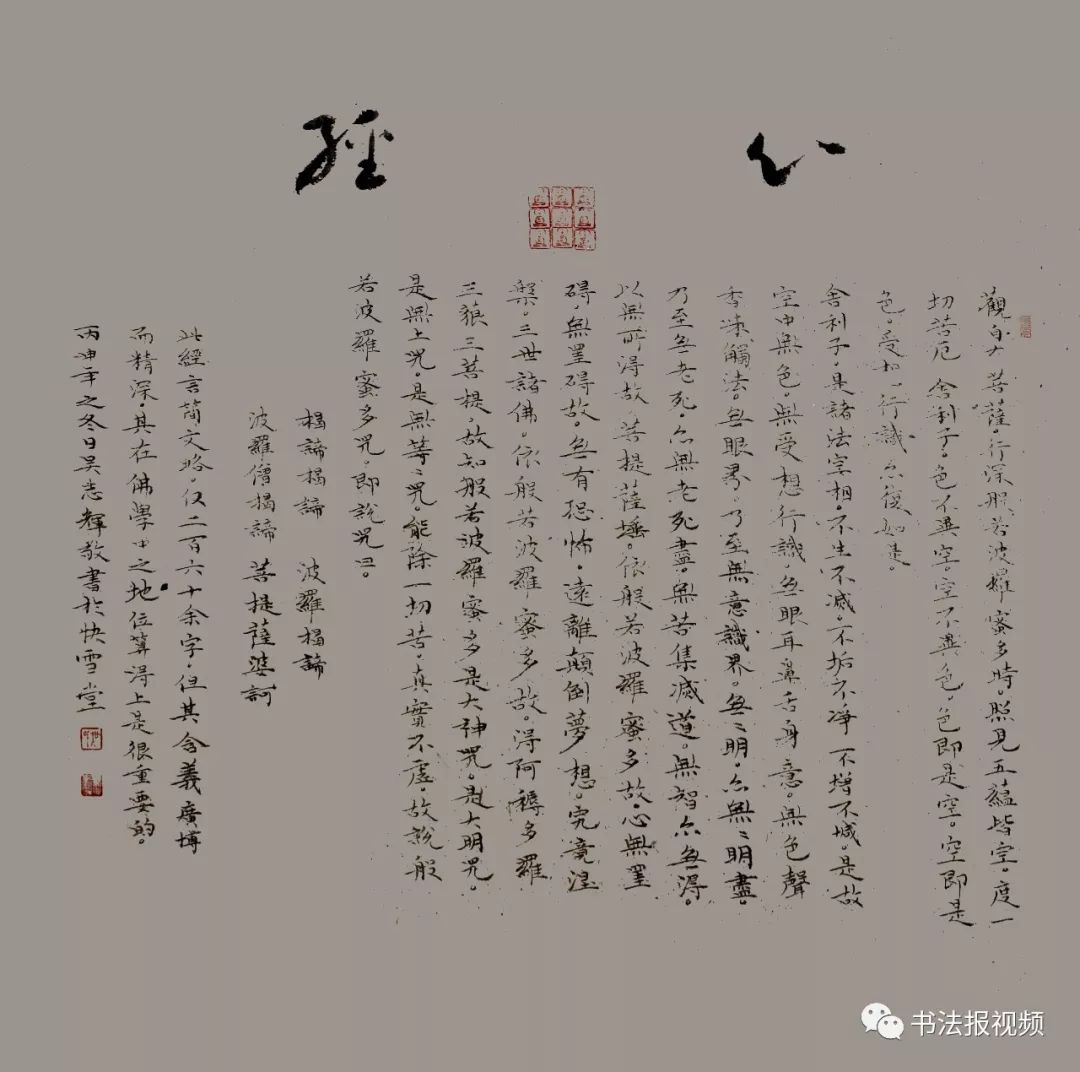 心經
觀自在菩薩。行深般若波羅蜜多時。照見五蘊皆空。度一
切苦厄 舍利子。色不異空。空不異色。色即是空。空即是
色。受想行識。亦復如是。
舍利子。是諸法空相。不生不滅。不垢不淨。不增不減。是故
空中無色。無受想行識。無眼耳鼻舌身意。無色聲
香味觸法。無眼界。乃至無意識界。無々明。亦無々明盡。
乃至無老死。亦無老死盡。無苦集滅道。無智亦無得。
以無所得故。菩提薩埵。依般若波羅蜜多故。心無罣
礙。無罣礙故。無有恐怖。遠離顛倒夢想。究竟涅
槃。三世諸佛。依般若波羅蜜多故。得阿耨多羅
三藐三菩提。故知般若波羅蜜多是大神咒。是大明咒。
是無上咒。是無等々咒。能除一切苦。真實不虛。故說般
若波羅蜜多咒。即說咒曰。
揭諦揭諦 波羅揭諦
波羅僧揭諦 菩提薩婆訶
此經言簡文略。仅二百六十余字。但其含義廣博
而精深。其在佛學中之地位算得上是很重要的。
丙申年之冬日吴志輝敬書於快雪堂
书法报视频